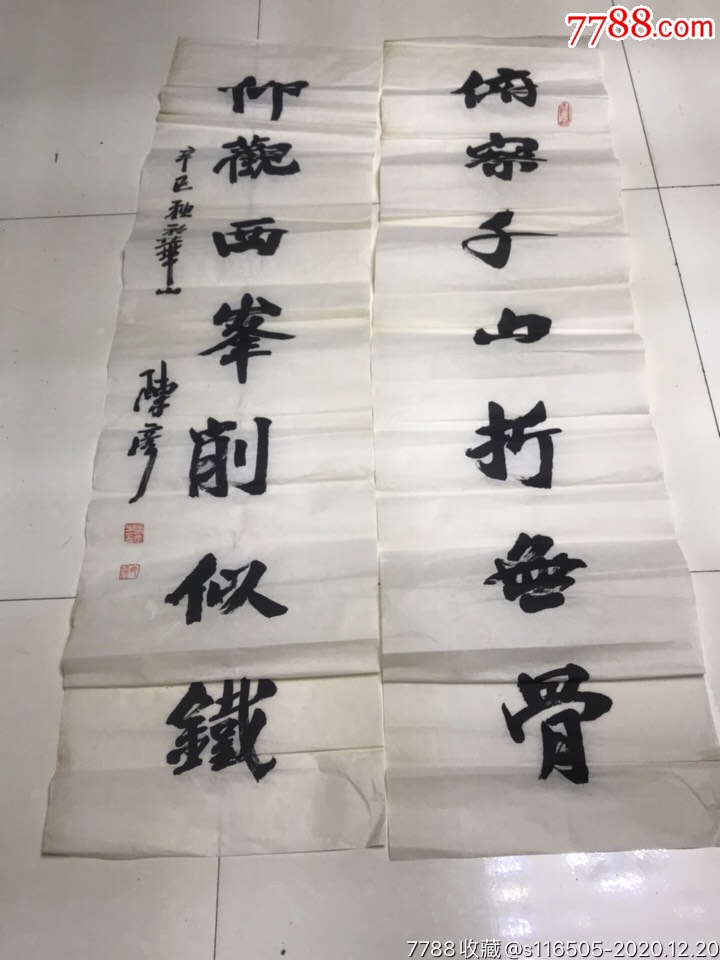 7788.com
俯察千山折無骨
仰觀西峯削似鐵
辛巳秋於華山
陳彦
7788收藏@s116505-2020.12.20